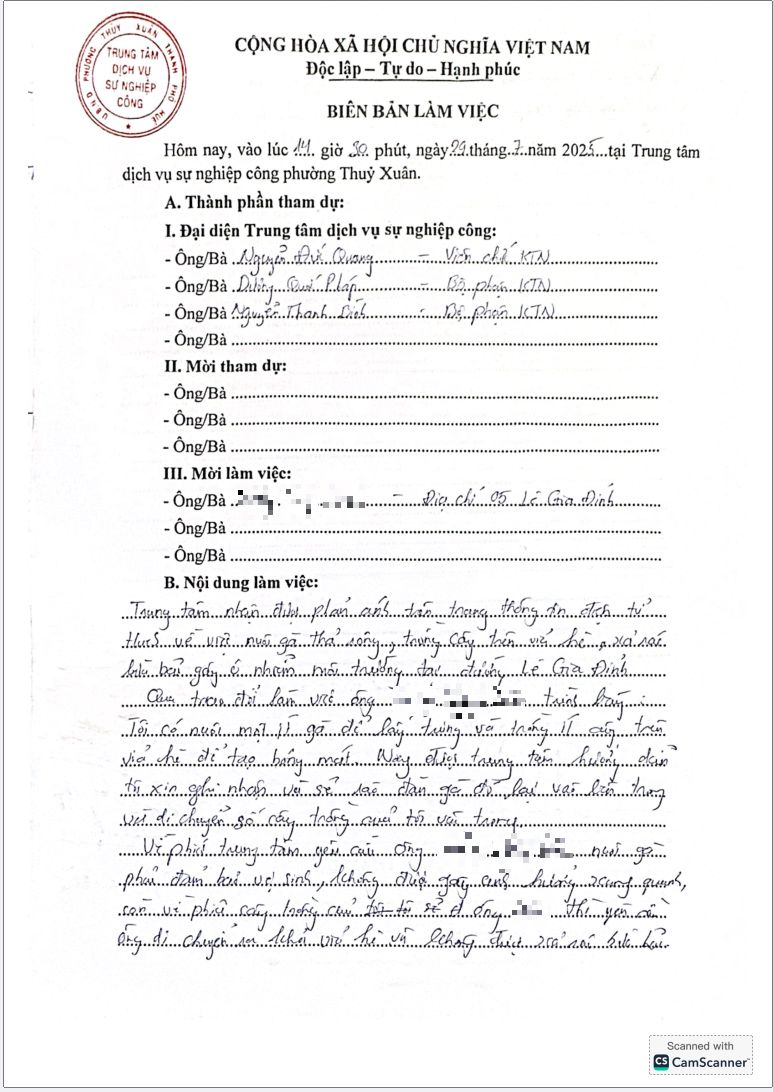 U.B.N.D PHƯỜNG THUỶ XUÂN THÀNH PHỐ HUẾ
TRUNG TÂM
DỊCH VỤ
SỰ NGHIỆP
CÔNG
CỘNG HÒA XÃ HỘI CHỦ NGHĨA VIỆT NAM
Độc lập – Tự do – Hạnh phúc
BIÊN BẢN LÀM VIỆC
Hôm nay, vào lúc 14 giờ 30 phút, ngày 29 tháng 7 năm 2025 tại Trung tâm
dịch vụ sự nghiệp công phường Thuỷ Xuân.
A. Thành phần tham dự:
I. Đại diện Trung tâm dịch vụ sự nghiệp công:
- Ông/Bà Nguyễn Đức Quang – Viên chức KTN
- Ông/Bà Dương Quốc Pháp – Bộ phận KTN
- Ông/Bà Nguyễn Thanh Bình – Bộ phận KTN
- Ông/Bà
II. Mời tham dự:
- Ông/Bà
- Ông/Bà
- Ông/Bà
III. Mời làm việc:
- Ông/Bà – Địa chỉ 05 Lê Gia Đỉnh
- Ông/Bà
- Ông/Bà
B. Nội dung làm việc:
Trung tâm nhận được phản ánh trên trang thông tin điện tử
Hues về việc nuôi gà thả rông, trồng cây trên vỉa hè, xả rác
bừa bãi gây ô nhiễm môi trường tại đường Lê Gia Đỉnh
Qua trao đổi làm việc ông trình bày:
Tôi có nuôi một ít gà để lấy trứng và trồng ít cây trên
vỉa hè để tạo bóng mát. Nay được trung tâm hướng dẫn
tôi xin ghi nhận và sẽ rào đàn gà để lại vào bên trong
và di chuyển số cây trồng của tôi vào trong.
Về phía trung tâm yêu cầu ông nuôi gà
phải đảm bảo vệ sinh, không được gây ảnh hưởng xung quanh,
còn về phía cây trồng của ông thì yêu cầu
ông di chuyển ra khỏi vỉa hè và không được xả rác bừa bãi.
Scanned with
CS CamScanner